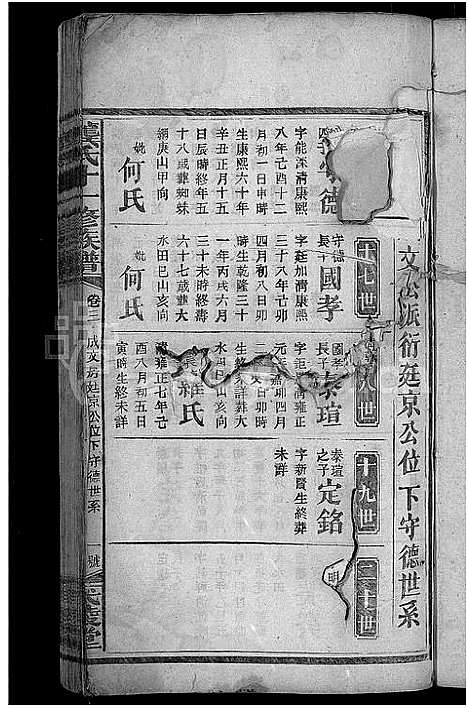 文公派衍廷京公位下守德世系
十七世
十八世
十九世
二十世
守德
字能深清康熙
八年己酉十二
月初一日申時
生康熙六十年
辛丑正月十五
日辰時終年五
十八歲葬蜘蛛
網庚山甲向
妣何氏
守德
長子
國孝
字廷加清康熙
三十八年己卯
四月初八日卯
時生乾隆三十
一年丙戌六月
三十未時終壽
六十七歲葬大
水田巳山亥向
妣何氏
國孝
長子
泰瑄
水田巳山亥向
清雍正七年己
酉八月初五日
寅時生終未詳
泰瑄
之子
定銘
字新賢生終葬
未詳
明
氏
修族譜
卷三
成文房廷京公位下守德世系
號